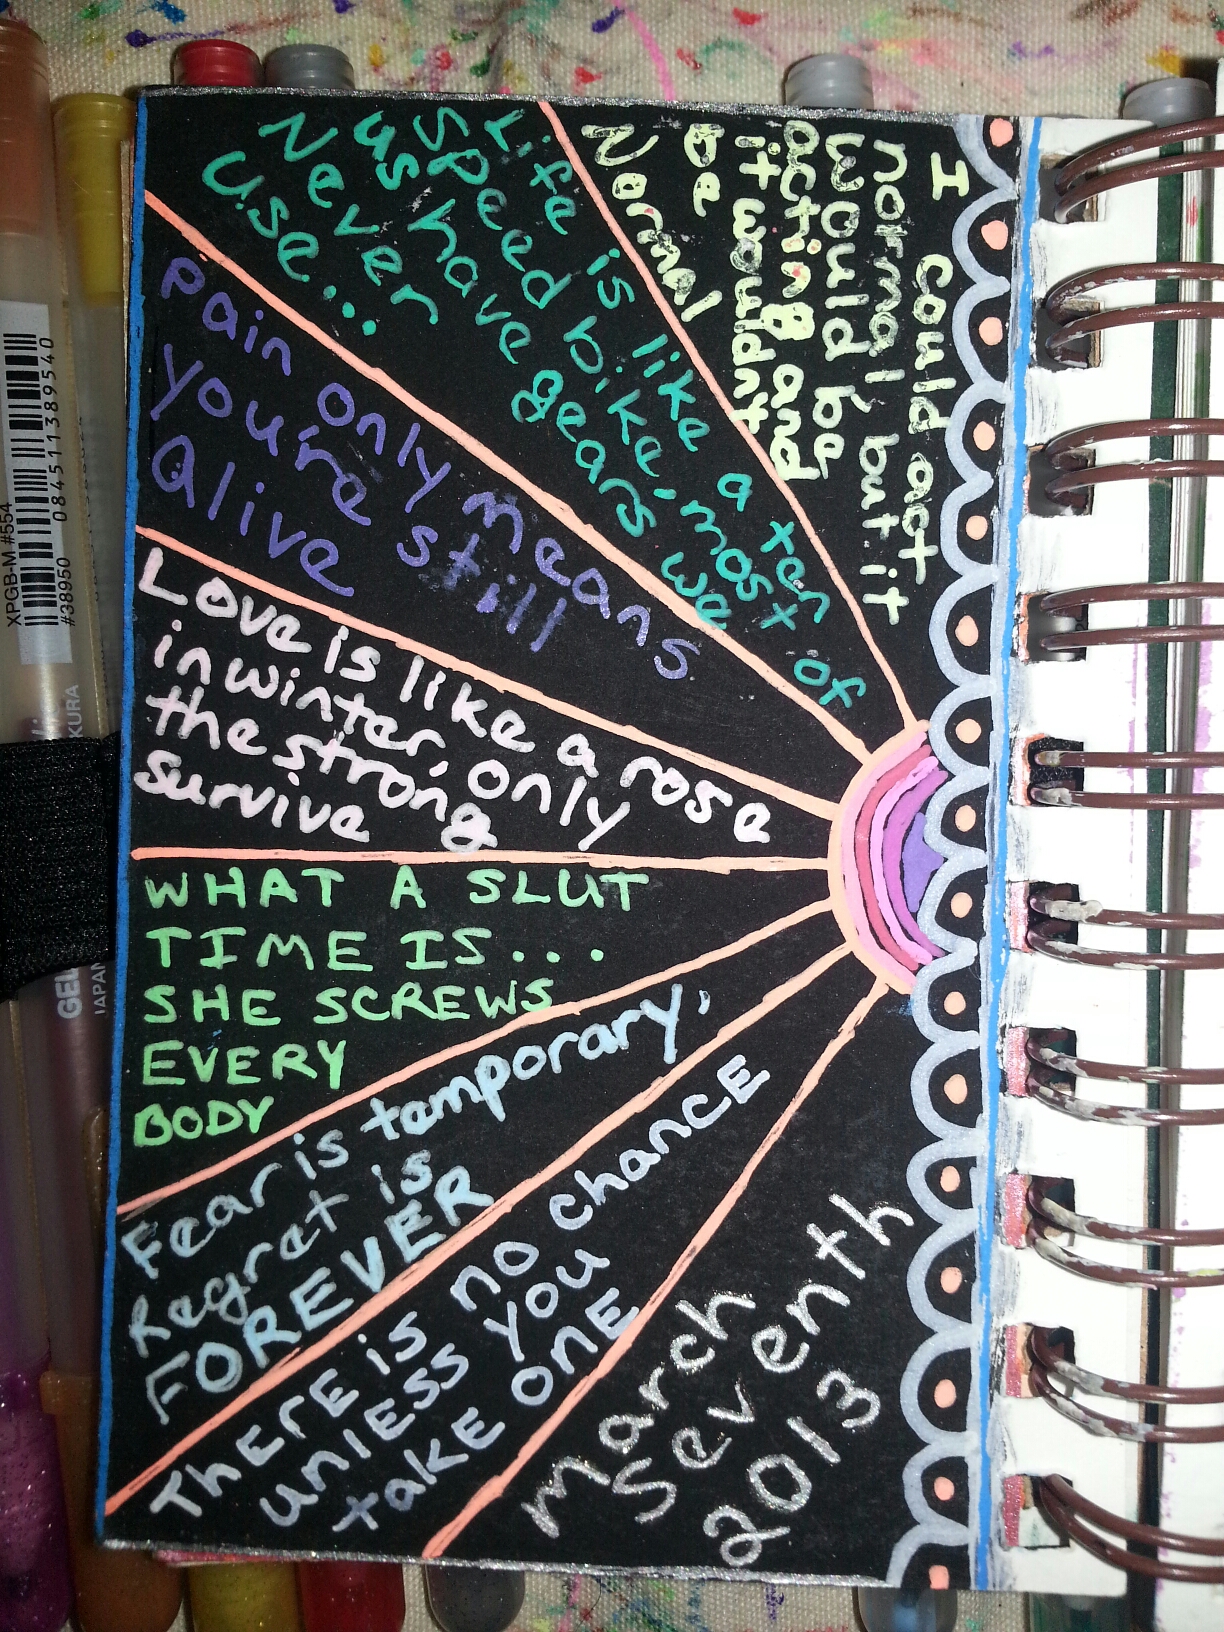 I could act
normal but it
would be
acting and
it wouldnt
be
Normal
Life is like a ten
speed bike, most of
us have gears we
Never
use...
pain only means
you're still
Alive
Love is like a rose
in winter, only
the strong
survive
WHAT A SLUT
TIME IS...
SHE SCREWS
EVERY
BODY
Fear is temporary,
Regret is
FOREVER
THERE is no chANCE
unlESS you
take ONE
march
Seventh
2013
XPGB-M #554
084511389540
#38950